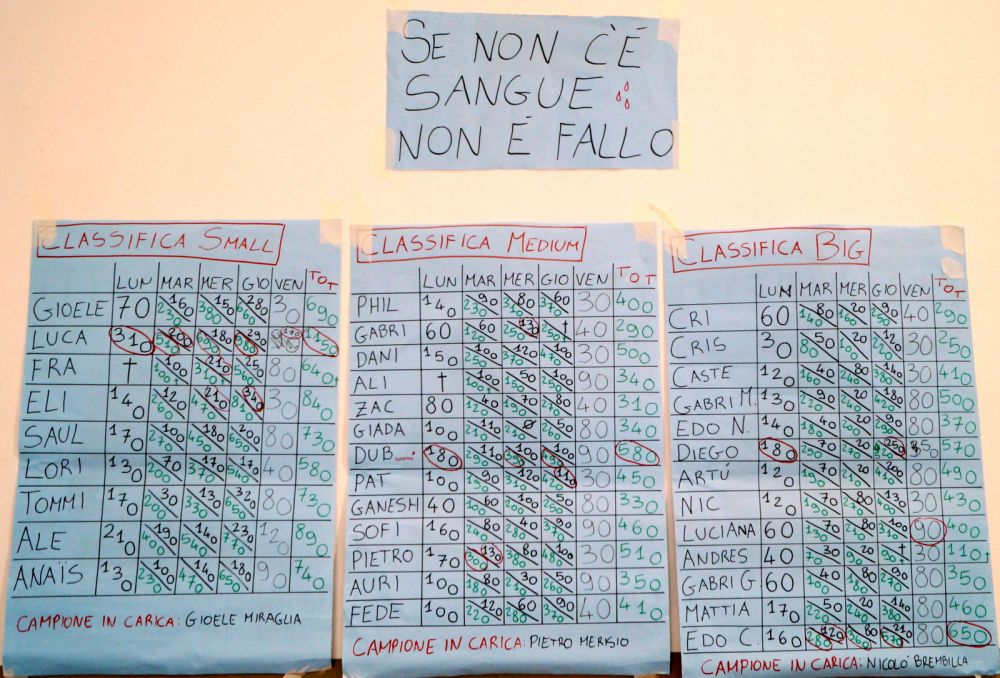 SE NON C'É
SANGUE
NON É FALLO
CLASSIFICA SMALL
LUN MAR MER GIO VEN TOT
GIOELE 70 160/230 150/380 280/660 30 690
LUCA 310 200/510 180/690 290/980 170 1150
FRA † 100/100 210/310 250/560 80 640
ELI 140 120/260 210/470 340/810 30 840
SAUL 170 100/270 180/450 200/650 80 730
LORI 130 70/200 170/370 170/540 40 580
TOMMI 170 30/200 130/330 320/650 80 730
ALE 210 190/400 140/540 230/770 120 890
ANAÏS 130 100/230 470 180/650 90 740
CAMPIONE IN CARICA: GIOELE MIRAGLIA
CLASSIFICA MEDIUM
LUN MAR MER GIO VEN TOT
PHIL 140 90/230 80/310 60/370 30 400
GABRI 60 60/120 130/250 † 40 290
DANI 150 100/250 120/370 100/470 30 500
ALI † 100/100 50/150 100/250 90 340
ZAC 80 40/120 70/190 80/270 40 310
GIADA 100 110/210 0/210 50/260 80 340
DUB 180 110/290 100/390 100/490 90 580
PAT 100 90/190 120/310 110/420 30 450
GANESH 40 60/100 50/150 100/250 80 330
SOFI 160 80/240 40/280 90/370 90 460
PIETRO 170 130/300 80/380 100/480 30 510
AURI 100 80/180 30/210 50/260 90 350
FEDE 100 120/220 60/280 90/370 40 410
CAMPIONE IN CARICA: PIETRO MERISIO
CLASSIFICA BIG
LUN MAR MER GIO VEN TOT
CRI 60 80/140 20/160 90/250 40 290
CRIS 30 50/80 20/100 120/220 30 250
CASTE 120 40/160 80/240 140/380 30 410
GABRI M. 130 90/220 20/240 180/420 80 500
EDO N. 140 60/200 90/290 50/340 30 370
DIEGO 180 70/250 20/270 250/520 50 570
ARTÚ 120 70/190 20/210 200/410 80 490
NIC 120 70/190 80/270 130/400 30 430
LUCIANA 60 70/130 80/210 100/310 90 400
ANDRES 40 30/70 20/90 † 110
GABRI G 60 40/100 80/180 90/270 80 350
MATTIA 170 50/220 20/240 140/380 80 460
EDO C. 160 120/280 80/360 210/570 80 650
CAMPIONE IN CARICA: NICOLÓ BREMBILLA